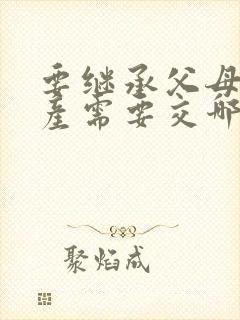 要继承父母
产需要交哪
聚焰成